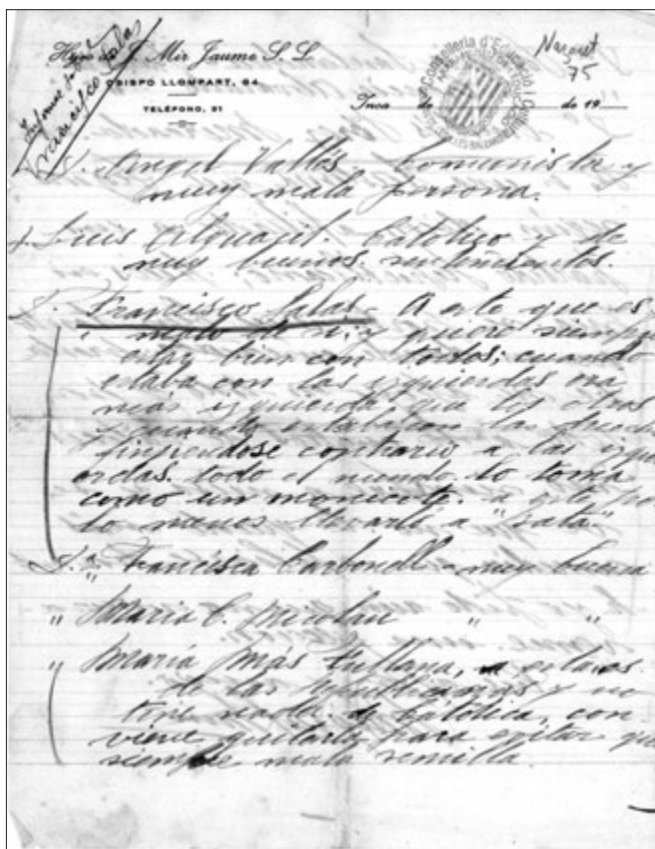 Hijo de J. Mir Jaume S. L.
OBISPO LLOMPART, 64
TELÉFONO, 91
Inca de de 19
Nazaret
75
Informe
Francisco Salas
Conselleria d'Educació i Cultura
D. Angel Vallés. Comunista y
muy mala persona.
Luis Católico y de
muy buenos sentimientos.
D. Francisco Salas A este que es
quiere siempre
estar bien con todos; cuando
estaba con las izquierdas era
más izquierda que los otros
cuando estaba con las
fingiendose contrario a las
erdas. todo el mundo lo toma
como un monicoto. a este
lo menos llevarlo a "
D.ª Francisca Carbonell - muy buena
" Maria C. Nicolau " "
" Maria Más Fullana, a esta es
de las republicanas y no
tiene nada de Católica, con-
viene quitarla para evitar que
siempre mala semilla.